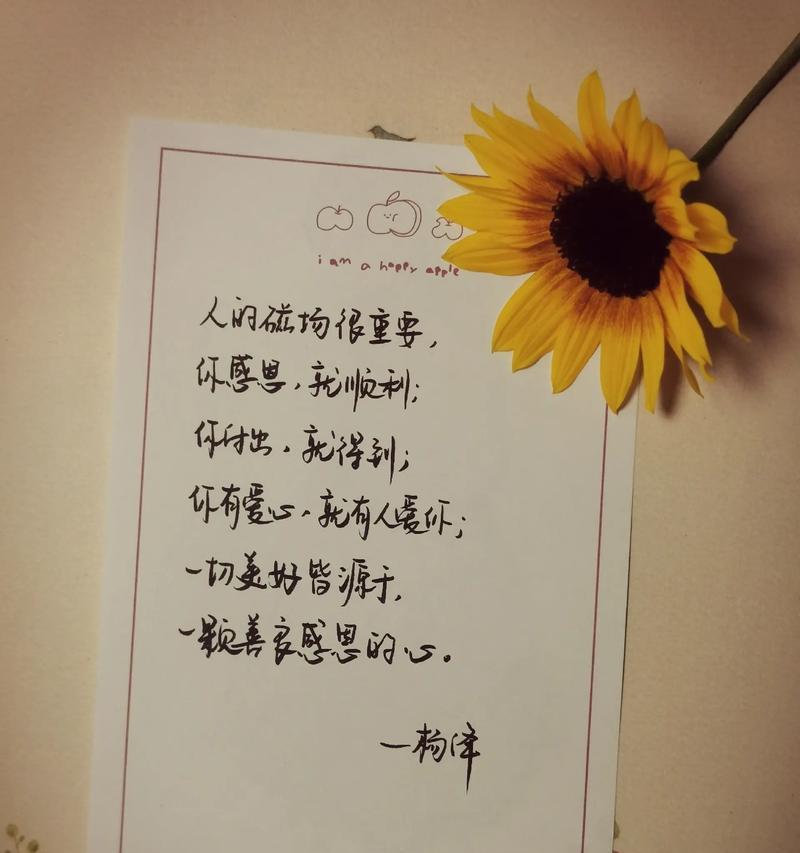 i am a happy apple
人的磁场很重要，
你感恩，就顺利；
你付出，就得到；
你有爱心，就有人爱你；
一切美好皆源于，
一颗善良感恩的心。
—杨泽